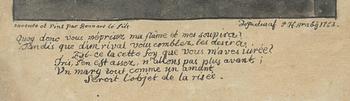 inventé et Peint par Bonnart le fils
Quoy donc vous méprisez ma flâme et mes soupirs?
Tandis que d'un rival vous comblez les desirs.
Est-ce la cette foy que vous m'avez jurée?
Iris, s'en est assez, n'allons pas plus avant;
Un mary tout comme un amant,
Seroit l'objet de la risée.